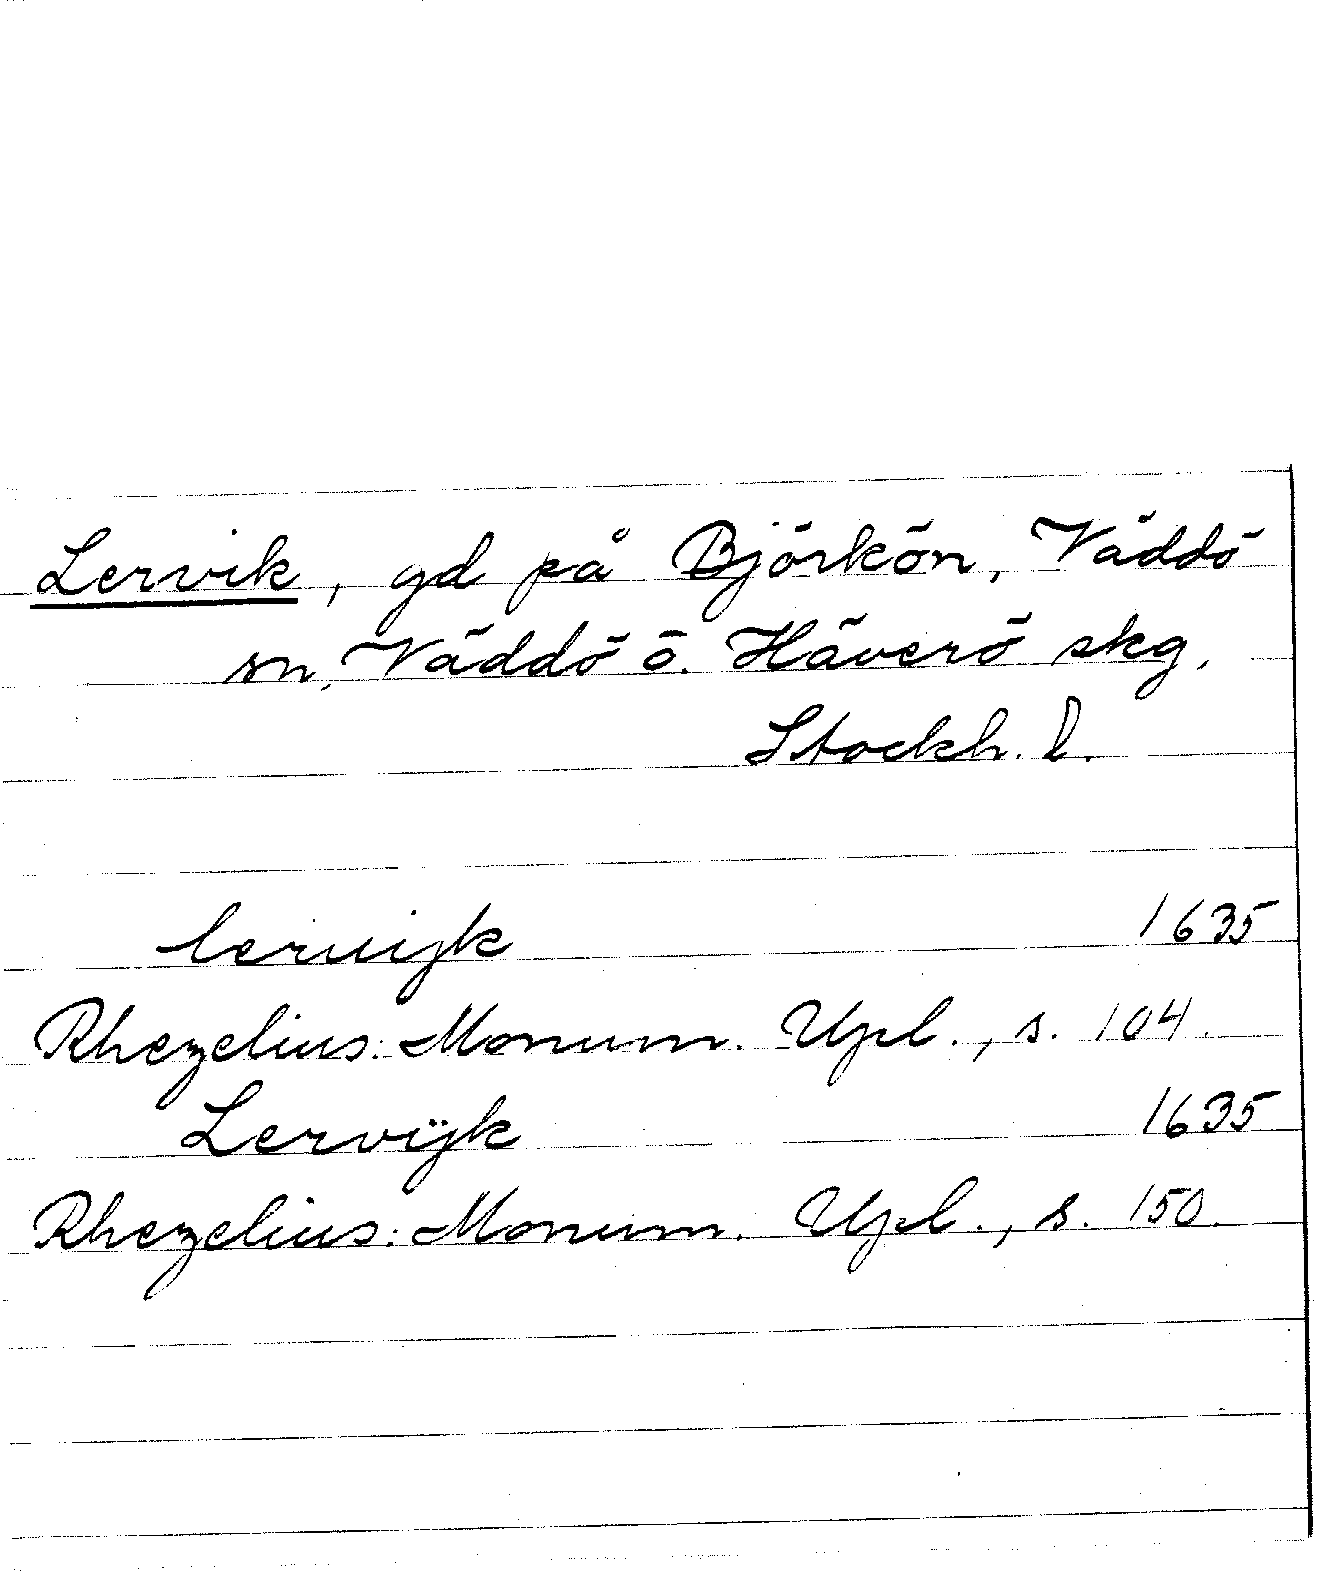 Lervik, gd på Björkön, Väddö
sn, Väddö ö. Häverö skg,
Stockh. l.
leruijk 1635
Rhezelius: Monum. Upl., s. 104.
Lervÿk 1635
Rhezelius: Monum. Upl., s. 150.